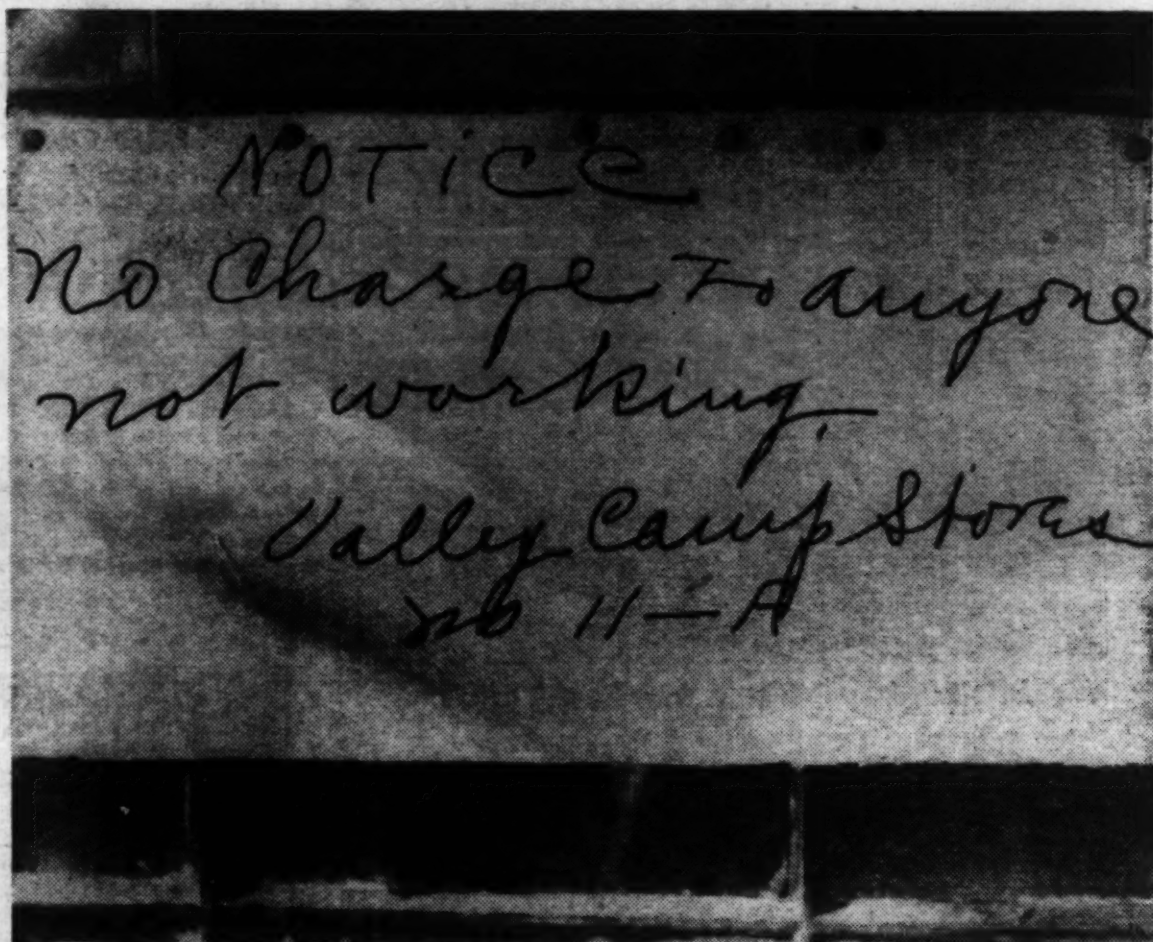 NOTiCe
No Charge To anyone
not working.
Valley Camp Stores
no 11-A